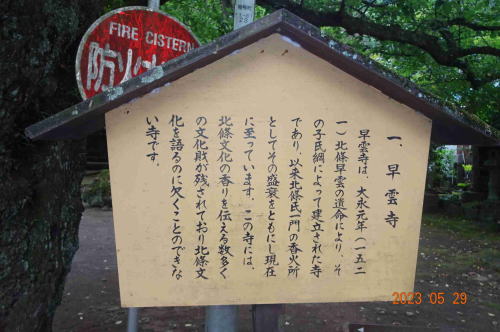 FIRE CISTERN
防火水
一、早雲寺
早雲寺は、大永元年(一五二
一)北條早雲の遺命により、そ
の子氏綱によって建立された寺
であり、以来北條氏一門の香火所
としてその盛衰をともにし現在
に至っています。この寺には、
北條文化の香りを伝える数多く
の文化財が残されており北條文
化を語るのに欠くことのできな
い寺です。
2023 05 29